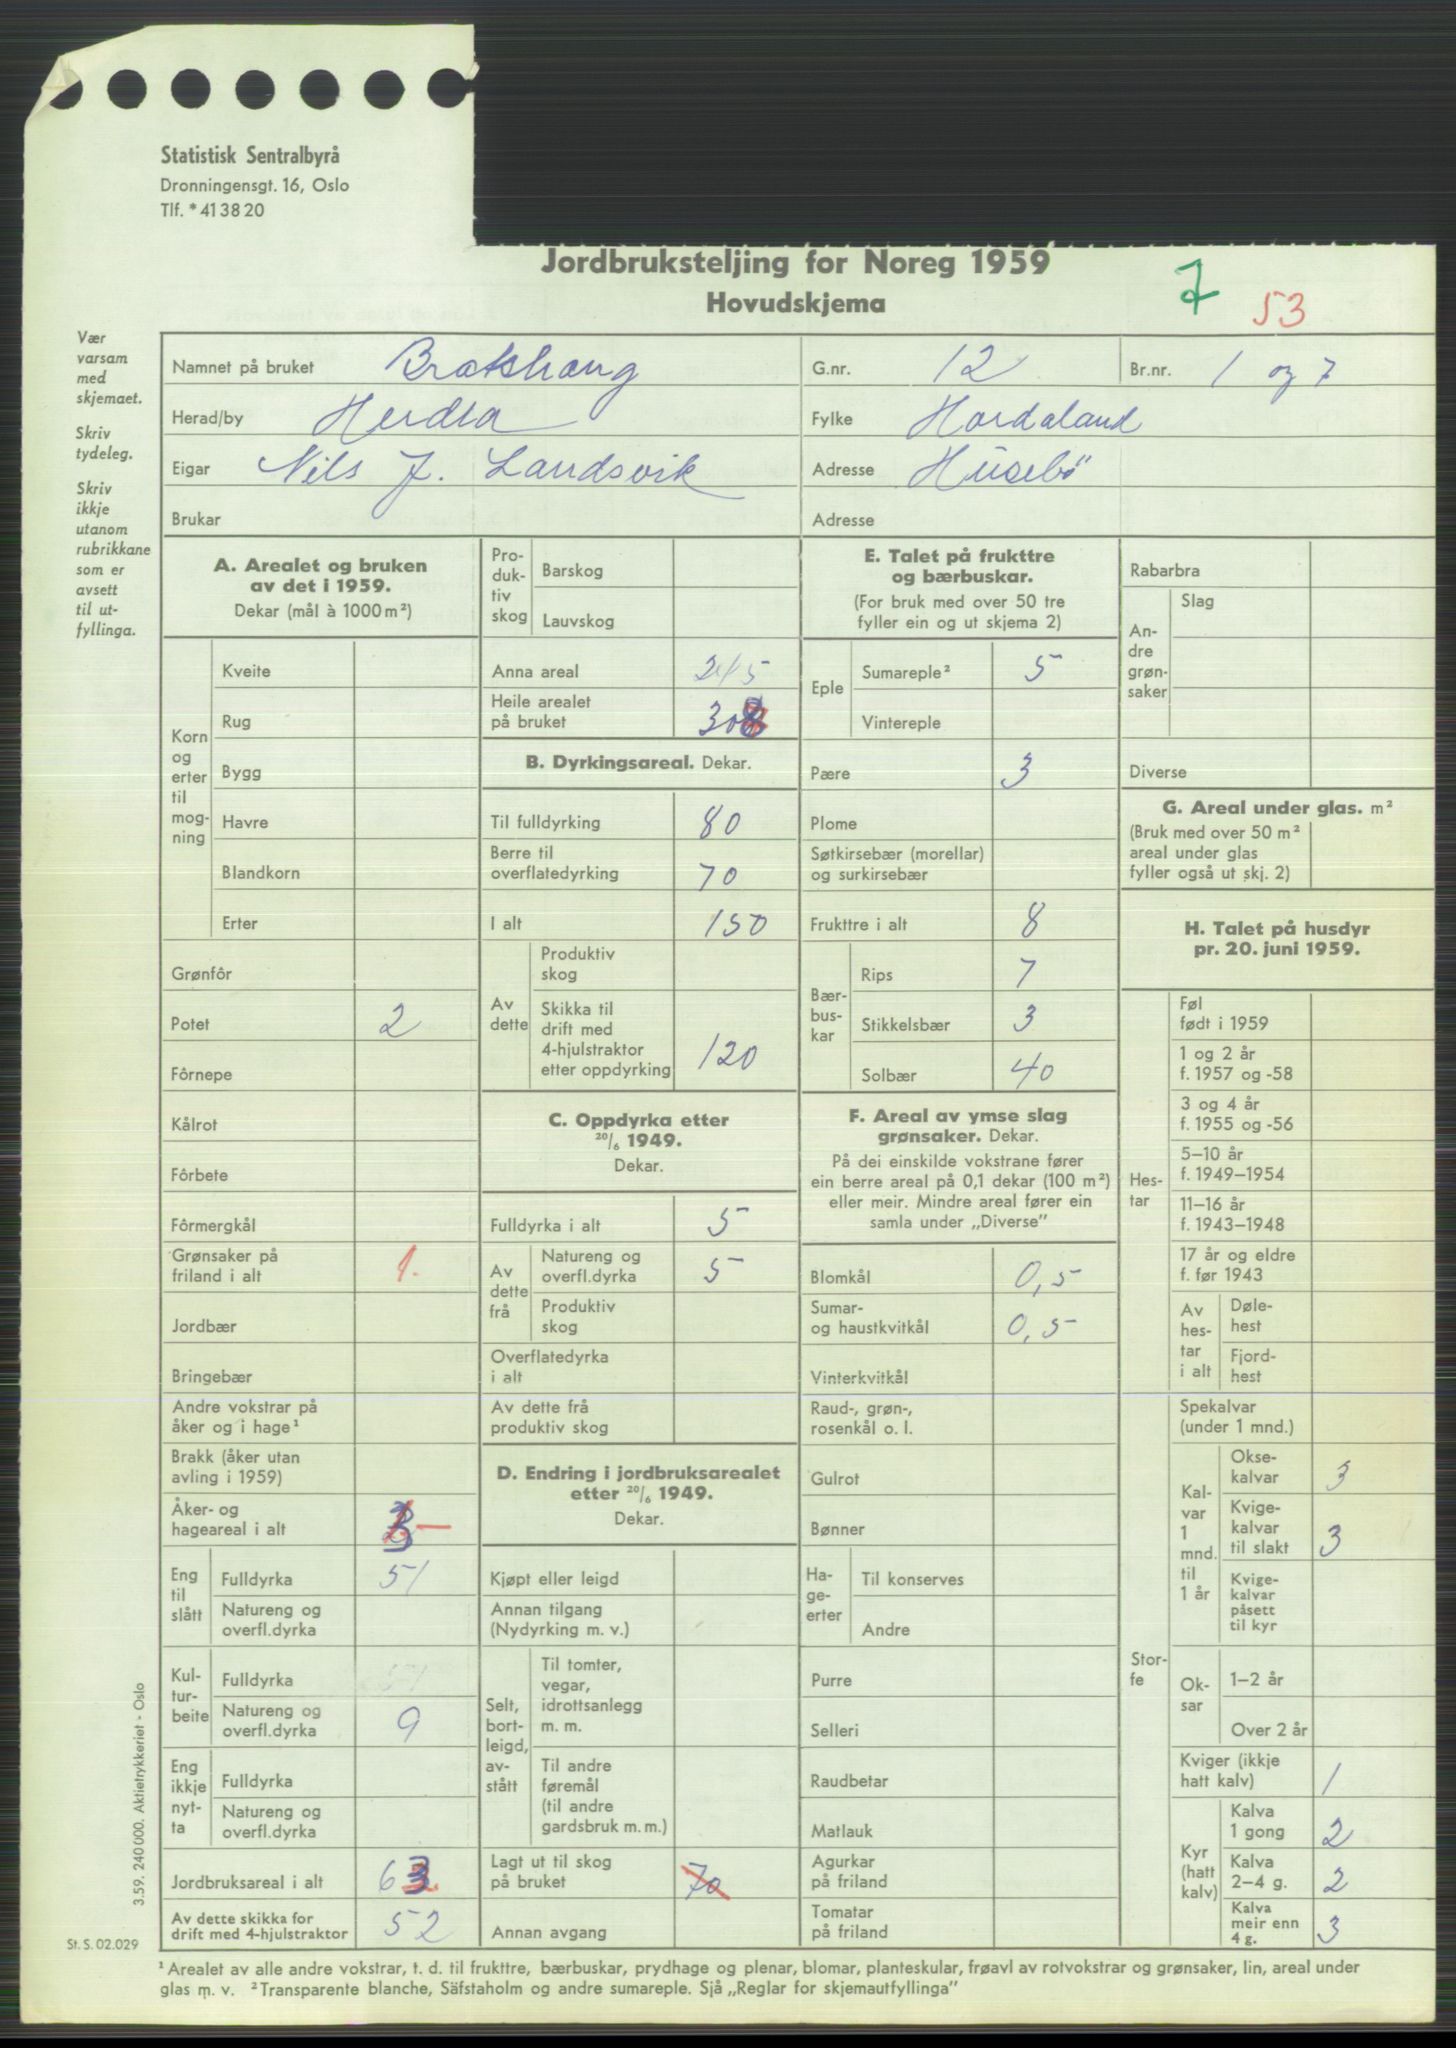 Statistisk Sentralbyrå
Dronningensgt. 16, Oslo
Tlf. * 41 38 20
Jordbruksteljing for Noreg 1959
Hovudskjema
7
53
Vær
varsam
med
skjemaet.
Skriv
tydeleg.
Skriv
ikkje
utanom
rubrikkane
som er
avsett
til ut-
fyllinga.
Namnet på bruket Brakshaug
G.nr. 12
Br.nr. 1 og 7
Herad/by Herdla
Fylke Hordaland
Eigar Nils J. Landsvik
Adresse Husebö
Brukar
Adresse
A. Arealet og bruken
av det i 1959.
Dekar (mål à 1000 m²)
Korn
og
erter
til
mog-
ning
Kveite
Rug
Bygg
Havre
Blandkorn
Erter
Grønfôr
Potet 2
Fôrnepe
Kålrot
Fôrbete
Fôrmergkål
Grønsaker på
friland i alt 1.
Jordbær
Bringebær
Andre vokstrar på
åker og i hage¹
Brakk (åker utan
avling i 1959)
Åker- og
hageareal i alt 3
Eng
til
slått
Fulldyrka 51
Natureng og
overfl.dyrka
Kul-
tur-
beite
Fulldyrka 51
Natureng og
overfl.dyrka 9
Eng
ikkje
nyt-
ta
Fulldyrka
Natureng og
overfl.dyrka
Jordbruksareal i alt 63
Av dette skikka for
drift med 4-hjulstraktor 52
Pro-
duk-
tiv
skog
Barskog
Lauvskog
Anna areal 245
Heile arealet
på bruket 308
B. Dyrkingsareal. Dekar.
Til fulldyrking 80
Berre til
overflatedyrking 70
I alt 150
Av
dette
Produktiv
skog
Skikka til
drift med
4-hjulstraktor
etter oppdyrking 120
C. Oppdyrka etter
20/6 1949.
Dekar.
Fulldyrka i alt 5
Av
dette
frå
Natureng og
overfl.dyrka 5
Produktiv
skog
Overflatedyrka
i alt
Av dette frå
produktiv skog
D. Endring i jordbruksarealet
etter 20/6 1949.
Dekar.
Kjøpt eller leigd
Annan tilgang
(Nydyrking m. v.)
Selt,
bort-
leigd,
av-
stått
Til tomter,
vegar,
idrottsanlegg
m. m.
Til andre
føremål
(til andre
gardsbruk m. m.)
Lagt ut til skog
på bruket 70
Annan avgang
E. Talet på frukttre
og bærbuskar.
(For bruk med over 50 tre
fyller ein og ut skjema 2)
Eple
Sumareple² 5
Vintereple
Pære 3
Plome
Søtkirsebær (morellar)
og surkirsebær
Frukttre i alt 8
Bær-
bus-
kar
Rips 7
Stikkelsbær 3
Solbær 40
F. Areal av ymse slag
grønsaker. Dekar.
På dei einskilde vokstrane fører
ein berre areal på 0,1 dekar (100 m²)
eller meir. Mindre areal fører ein
samla under „Diverse”
Blomkål 0,5
Sumar-
og haustkvitkål 0,5
Vinterkvitkål
Raud-, grøn-,
rosenkål o. l.
Gulrot
Bønner
Ha-
ge-
erter
Til konserves
Andre
Purre
Selleri
Raudbetar
Matlauk
Agurkar
på friland
Tomatar
på friland
Rabarbra
An-
dre
grøn-
saker
Slag
Diverse
G. Areal under glas. m²
(Bruk med over 50 m²
areal under glas
fyller også ut skj. 2)
H. Talet på husdyr
pr. 20. juni 1959.
Hes-
tar
Føl
født i 1959
1 og 2 år
f. 1957 og -58
3 og 4 år
f. 1955 og -56
5–10 år
f. 1949–1954
11–16 år
f. 1943–1948
17 år og eldre
f. før 1943
Av
hes-
tar
i alt
Døle-
hest
Fjord-
hest
Stor-
fe
Spekalvar
(under 1 mnd.)
Kal-
var
1
mnd.
til
1 år
Okse-
kalvar 3
Kvige-
kalvar
til slakt 3
Kvige-
kalvar
påsett
til kyr
Ok-
sar
1–2 år
Over 2 år
Kviger (ikkje
hatt kalv) 1
Kyr
(hatt
kalv)
Kalva
1 gong 2
Kalva
2–4 g. 2
Kalva
meir enn
4 g. 3
3.59. 240 000. Aktietrykkeriet - Oslo
St. S. 02.029
¹ Arealet av alle andre vokstrar, t. d. til frukttre, bærbuskar, prydhage og plenar, blomar, planteskular, frøavl av rotvokstrar og grønsaker, lin, areal under
glas m. v. ² Transparente blanche, Säfstaholm og andre sumareple. Sjå „Reglar for skjemautfyllinga”